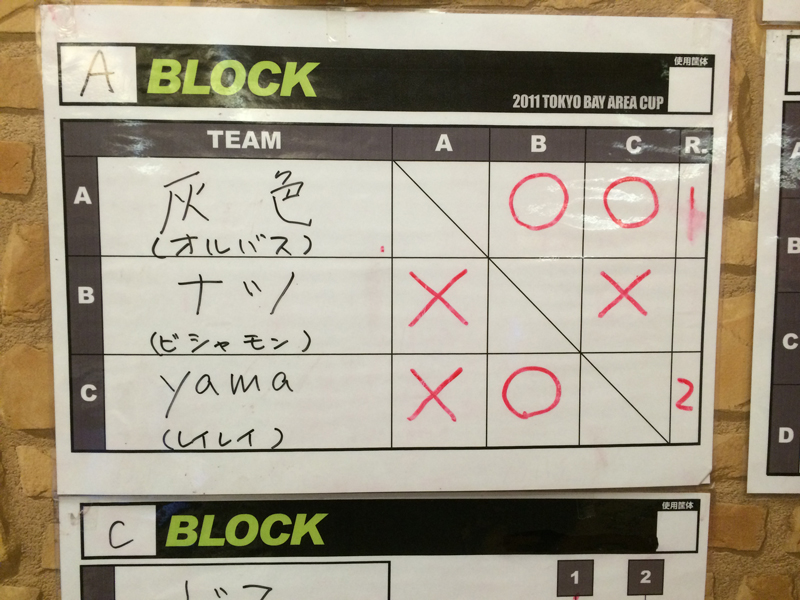 A BLOCK
使用筐体
2011 TOKYO BAY AREA CUP
TEAM A B C R.
A 灰色 ○ ○ 1
(オルバス)
B ナツノ × ×
(ビシャモン)
C yama × ○ 2
(レイレイ)
C BLOCK
使用筐体
1 2
A
B
C
D